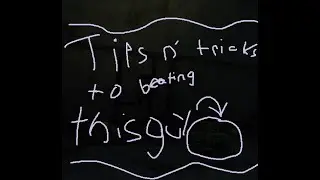 Tips n' tricks
to beating
this guy